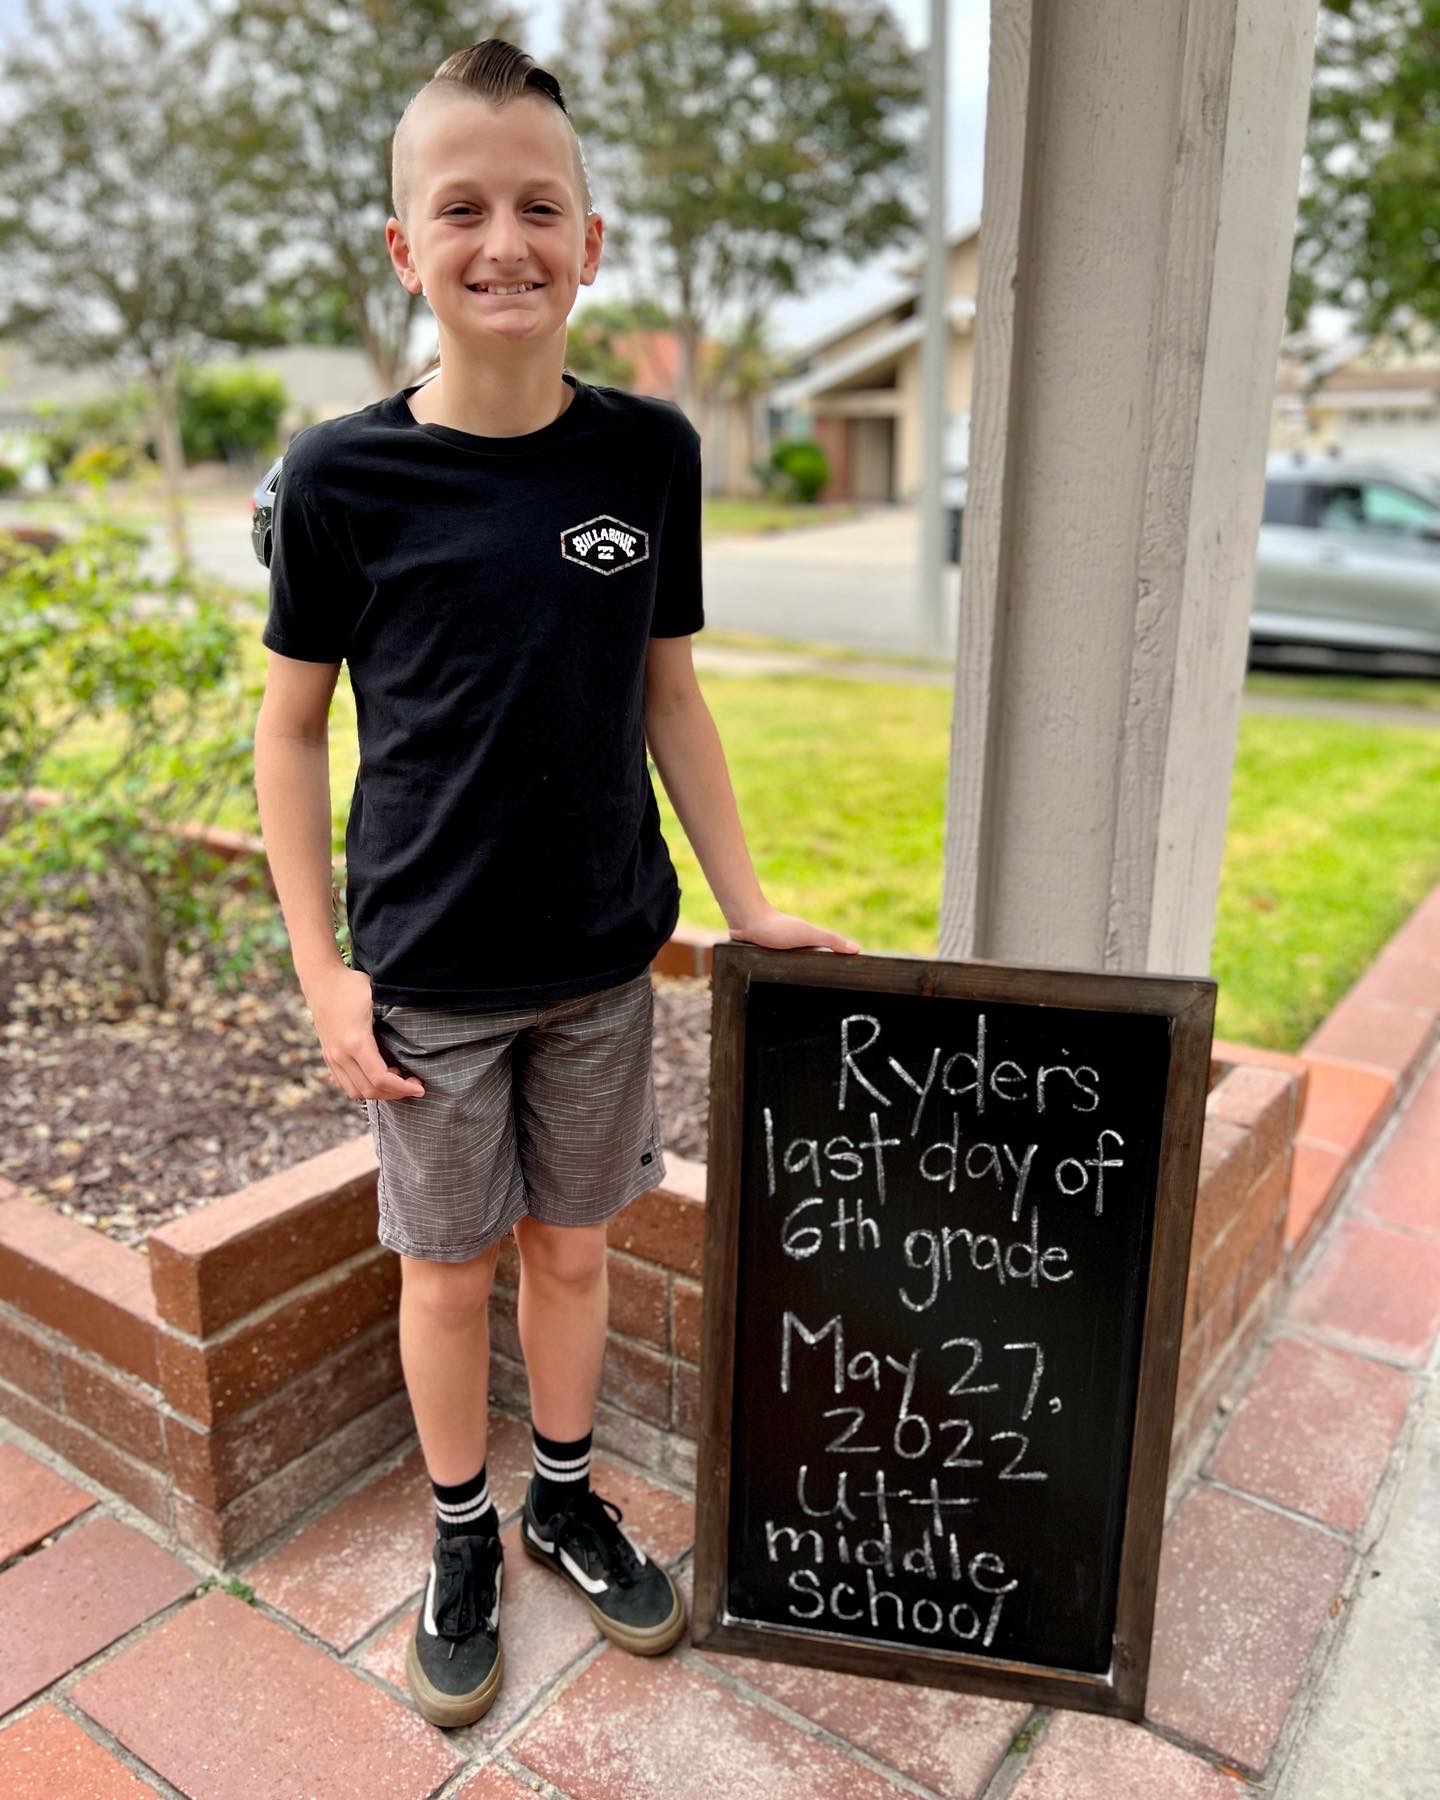 BILLABONG
Ryder's
last day of
6th grade
May 27,
2022
Utt
middle
school